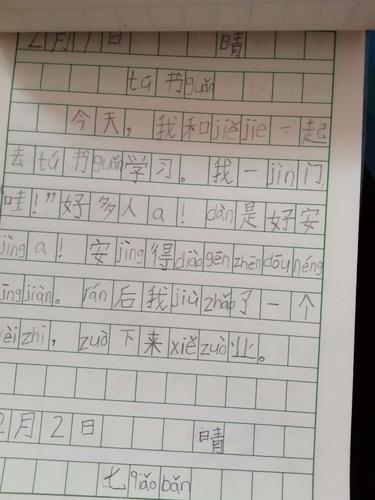 2月1日 晴
tú书guǎn
今天，我和jiějie一起
去tú书guǎn学习。我一jìn门
哇！”好多人a！dàn是好安
jìng a！安jìng得diàogēnzhēndōunéng
īngjiàn。rán后我jiùzhǎo了一个
èizhi，zuò下来xiězuò业。
2月2日 晴
七qiǎobǎn